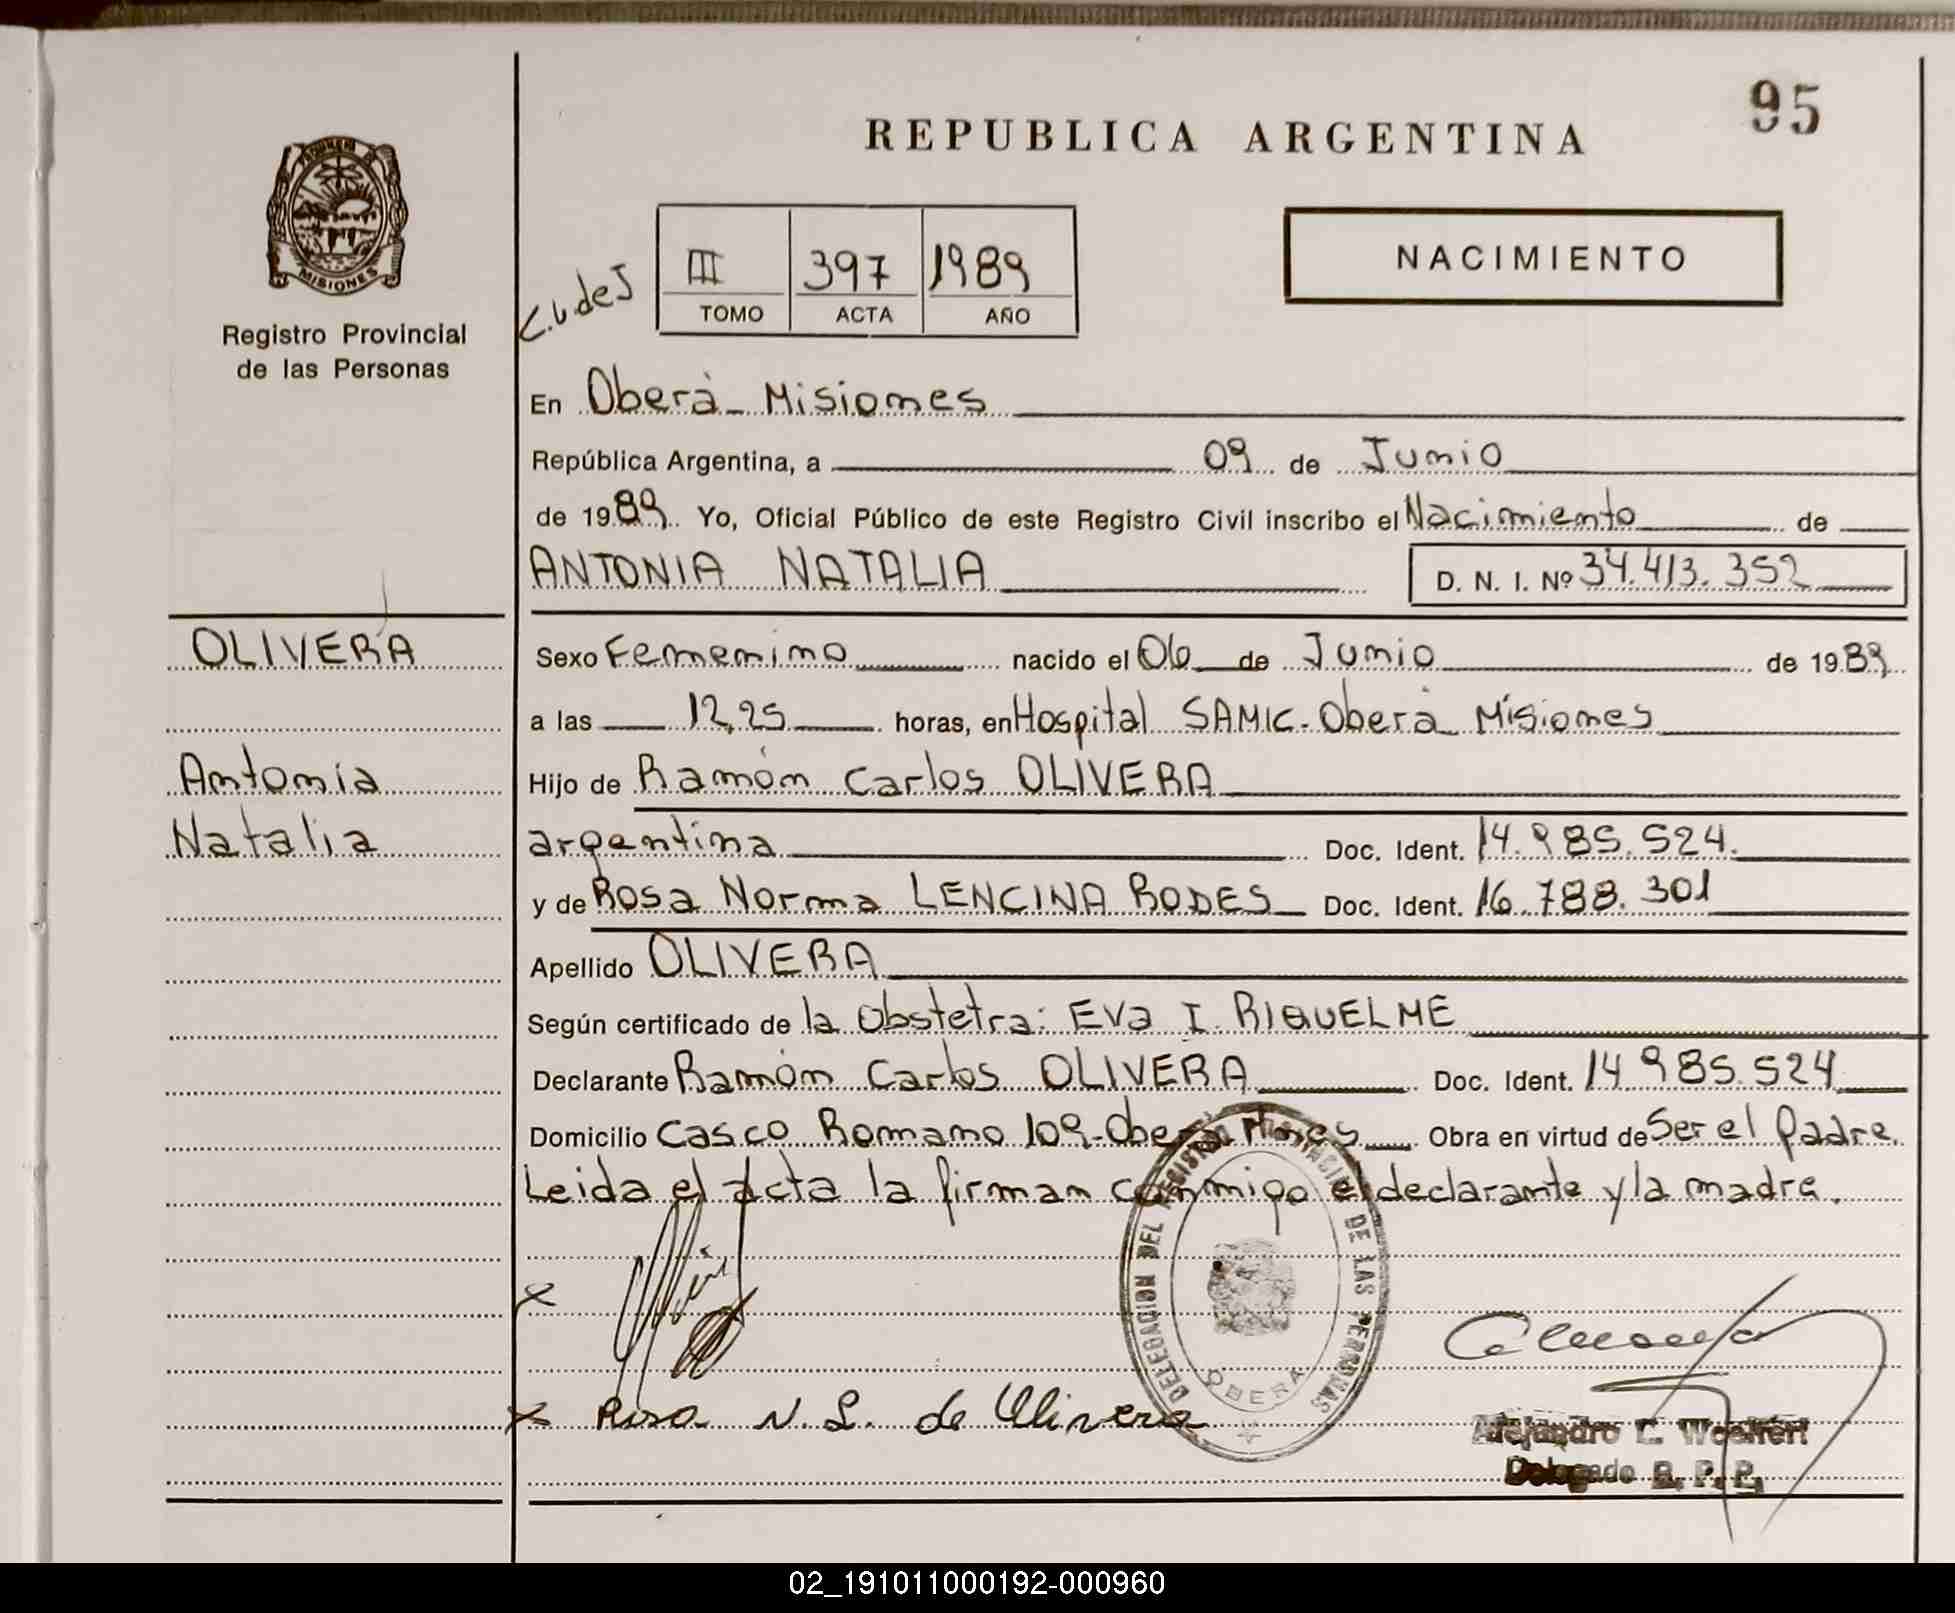 95
REPUBLICA ARGENTINA
MISIONES
Registro Provincial
de las Personas
III 397 1989
TOMO ACTA AÑO
NACIMIENTO
En Oberá - Misiones
República Argentina, a 09 de Junio
de 1989 Yo, Oficial Público de este Registro Civil inscribo el Nacimiento de
ANTONIA NATALIA D. N. I. Nº 34.413.352
OLIVERA
Antonia
Natalia
Sexo Femenino nacido el 06 de Junio de 1989
a las 12,25 horas, en Hospital SAMIC - Oberá Misiones
Hijo de Ramón Carlos OLIVERA
argentina Doc. Ident. 14.985.524.
y de Rosa Norma LENCINA RODES Doc. Ident. 16.788.301
Apellido OLIVERA
Según certificado de la Obstetra: Eva I. RIQUELME
Declarante Ramón Carlos OLIVERA Doc. Ident. 14.985.524
Domicilio Casco Romano 109 - Oberá Mnes Obra en virtud de Ser el Padre.
Leida el acta la firman conmigo el declarante y la madre.
DELEGACION DEL REGISTRO PROVINCIAL DE LAS PERSONAS
OBERA
x
x Rosa N. L. de Olivera
Alejandro C. Woelfert
Delegado R. P. P.
02_191011000192-000960